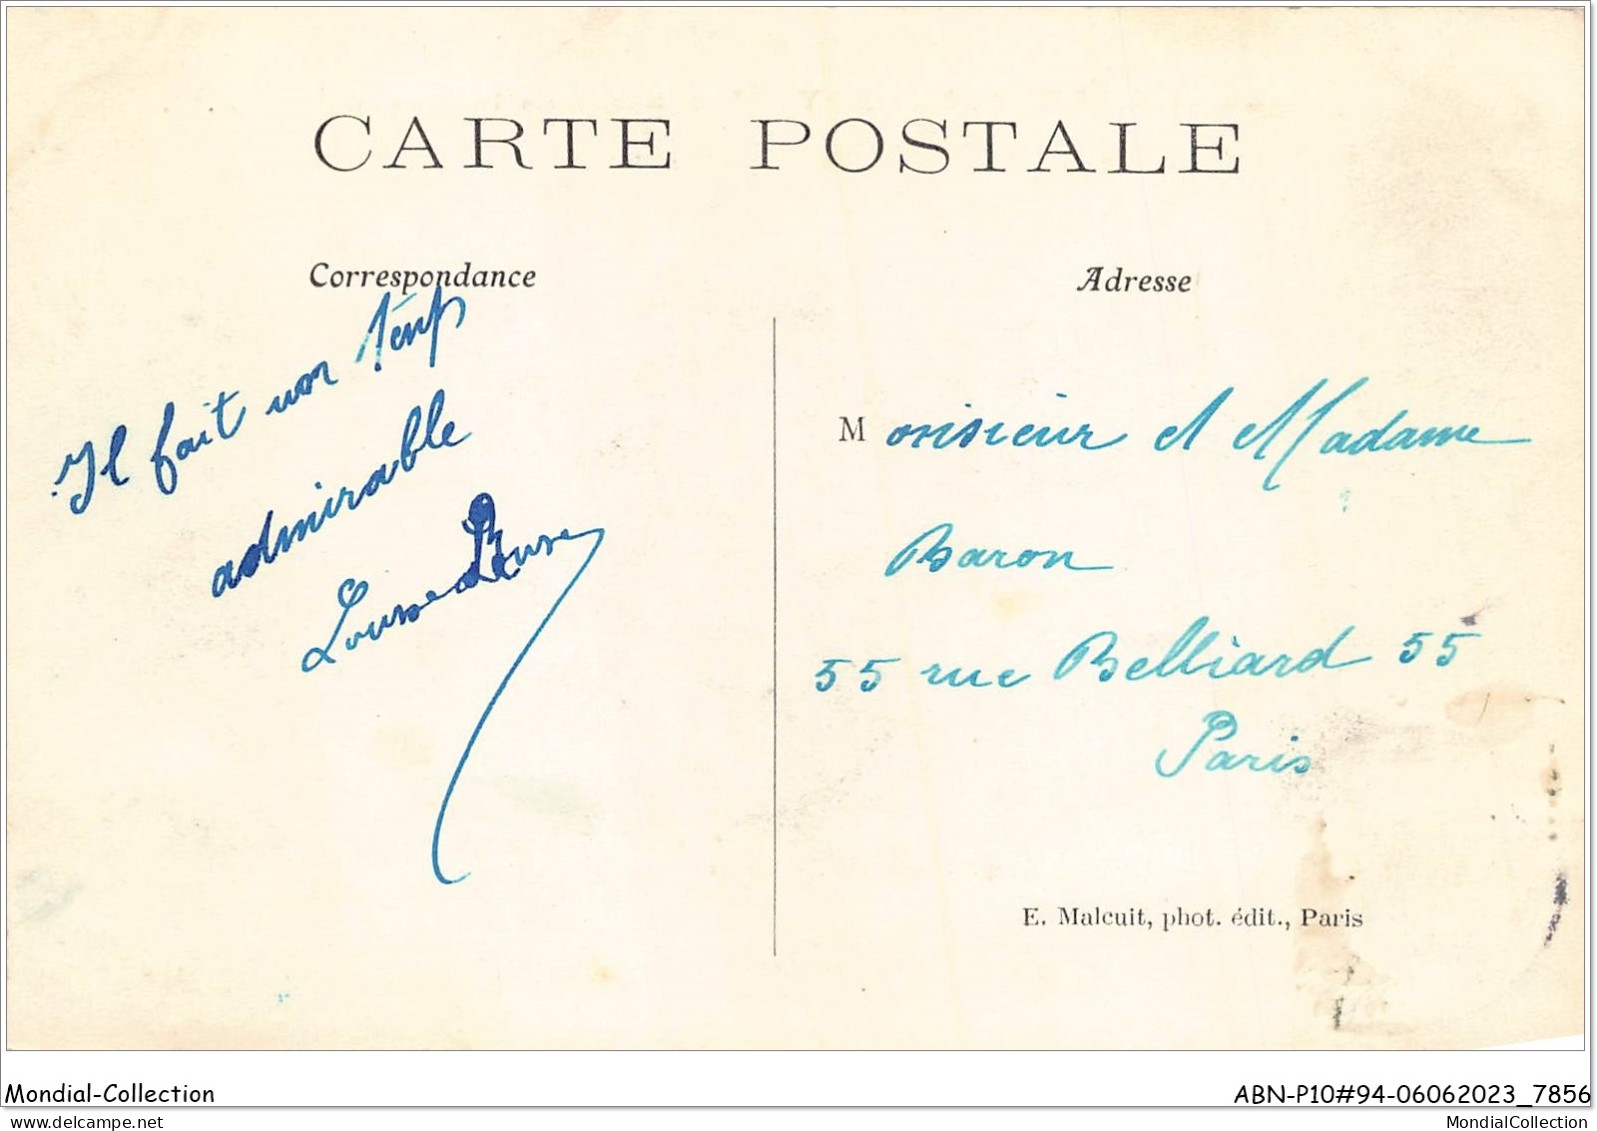 CARTE POSTALE
Correspondance
Il fait un temps
admirable
Louise
Adresse
Monsieur et Madame
Baron
55 rue Belliard 55
Paris
E. Malcuit, phot. édit., Paris
Mondial-Collection
ABN-P10#94-06062023_7856
www.delcampe.net
MondialCollection